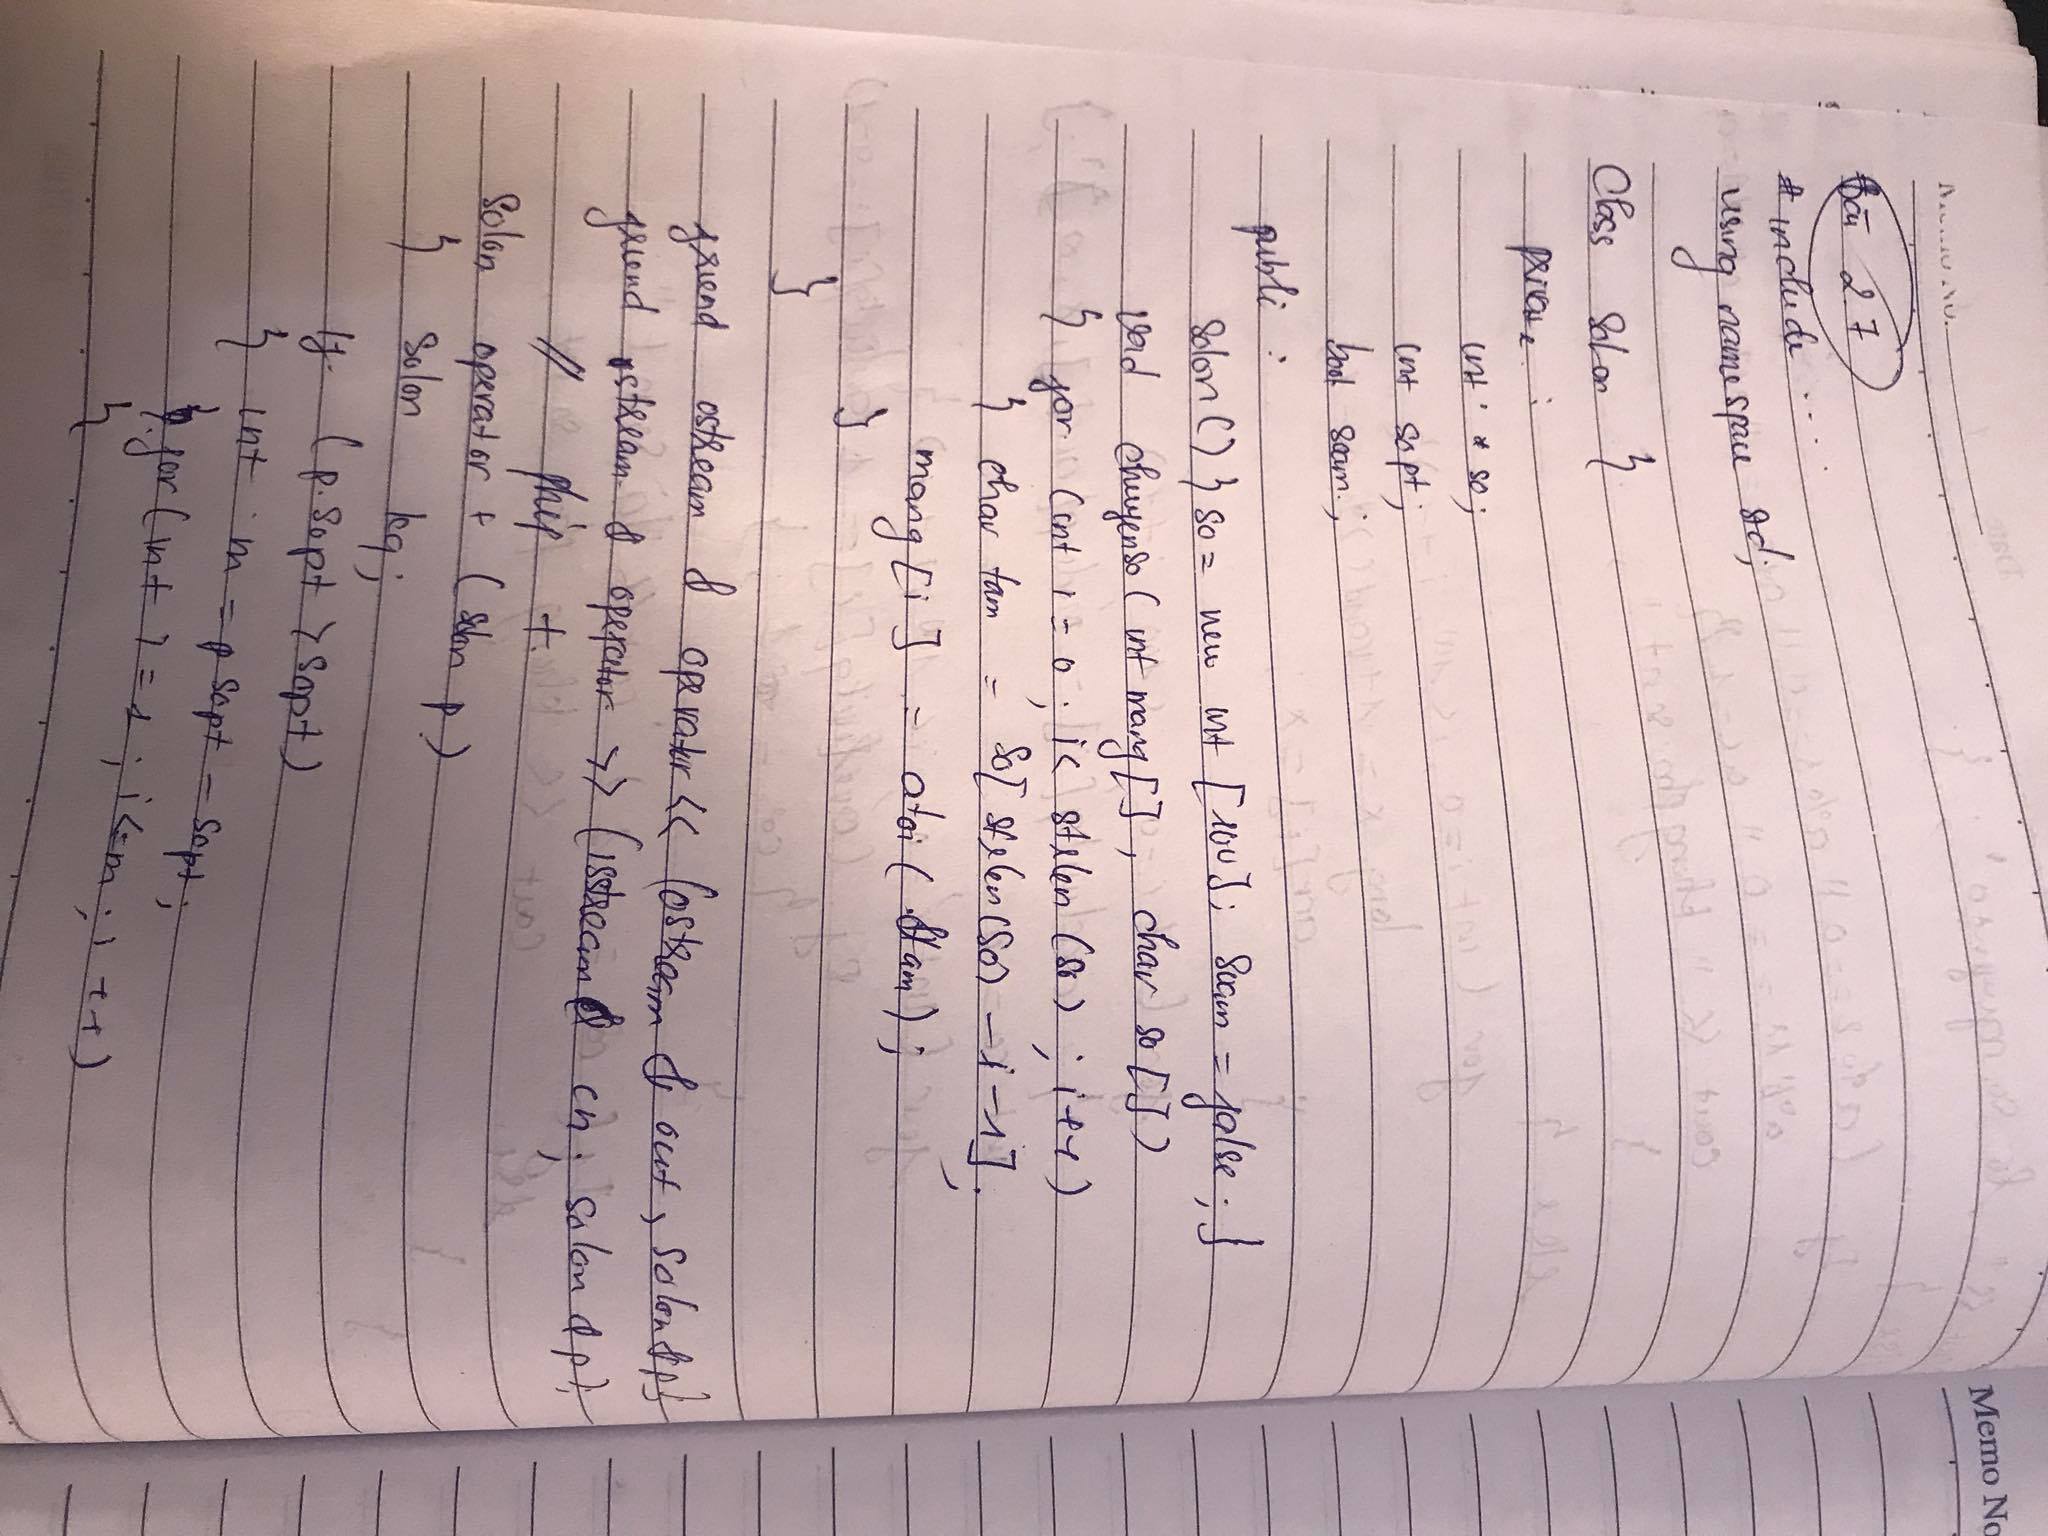 Bài 27
# include ...
using namespace std;
Class Solon {
private :
int * so;
int sopt;
bool soam;
public :
Solon() { so = new int [100]; soam = false; }
void chuyenso (int mang[], char so[])
{ for (int i = 0; i < strlen (so) ; i++)
{ char tam = so[strlen(so) - i - 1];
mang[i] = atoi(&tam);
}
}
friend ostream & operator << (ostream & out, Solon &p)
friend istream & operator >> (istream & cn, Solon & p);
// phép +
Solon operator + (Solon p)
{ Solon kq;
if (p.sopt > sopt)
{ int m = p sopt - sopt;
for (int i = 1 ; i <= m ; i ++)
{
Memo No